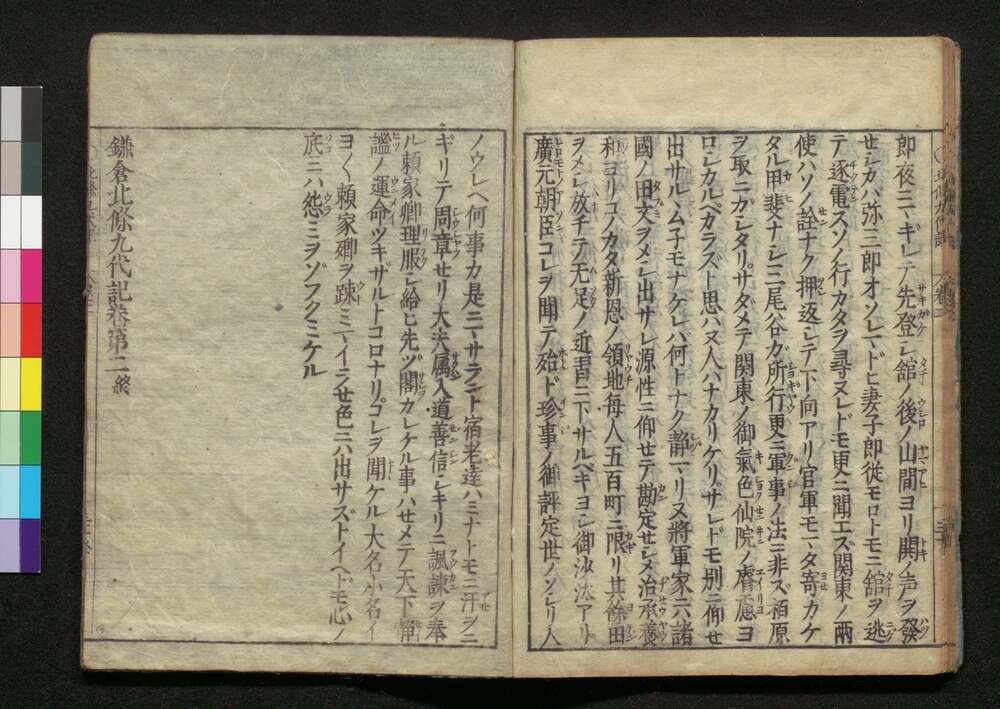 即夜ニマギレテ先登シ舘ノ後ノ山間ヨリ鬨ノ声ヲ發
セシカバ弥三郎オソレマドヒ妻子郎従モロトモニ舘ヲ逃
テ逐電スソノ行カタヲ尋ヌレドモ更ニ聞エズ関東ノ兩
使ハソノ詮ナク押返シテ下向アリ官軍モマタ寄カケ
タル甲斐ナシニ尾谷ガ所行更ニ軍事ノ法ニ非ズ栢原
ヲ取ニガシタリサダメテ関東ノ御氣色仙院ノ膚慮ヨ
ロシカルベカラズト思ハヌ人ハナカリケリサレドモ別ニ仰セ
出サルヽム子モナケレバ何トナク静マリヌ又將軍家ニハ諸
國ノ田文ヲメシ出サレ源性ニ仰セテ勘定セシメ治承養
和ヨリコノカタ新恩ノ領地毎人五百町ニ限リ其餘田
ヲメシ放チテ无足ノ近習ニ下サルベキヨシ御沙汰アリ
廣元朝臣コレヲ聞テ殆ド珍事ノ御評定世ノソシリ人
ノウレヘ何事カ是ニマサラント宿老達ハミナトモニ汗ヲニ
ギリテ周章セリ大夫属入道善信シキリニ諷諫ヲ奉
ル頼家卿理服シ給ヒ先ヅ閣カレケル事ハセメテ天下静
謐ノ運命ツキザルトコロナリコレヲ聞ケル大名小名イ
ヨ〱頼家卿ヲ踈ミマイラセ色ニハ出サズトイヘドモ心ノ
底ニハ怨ミヲゾフクミケル
鎌倉北條九代記巻第二終